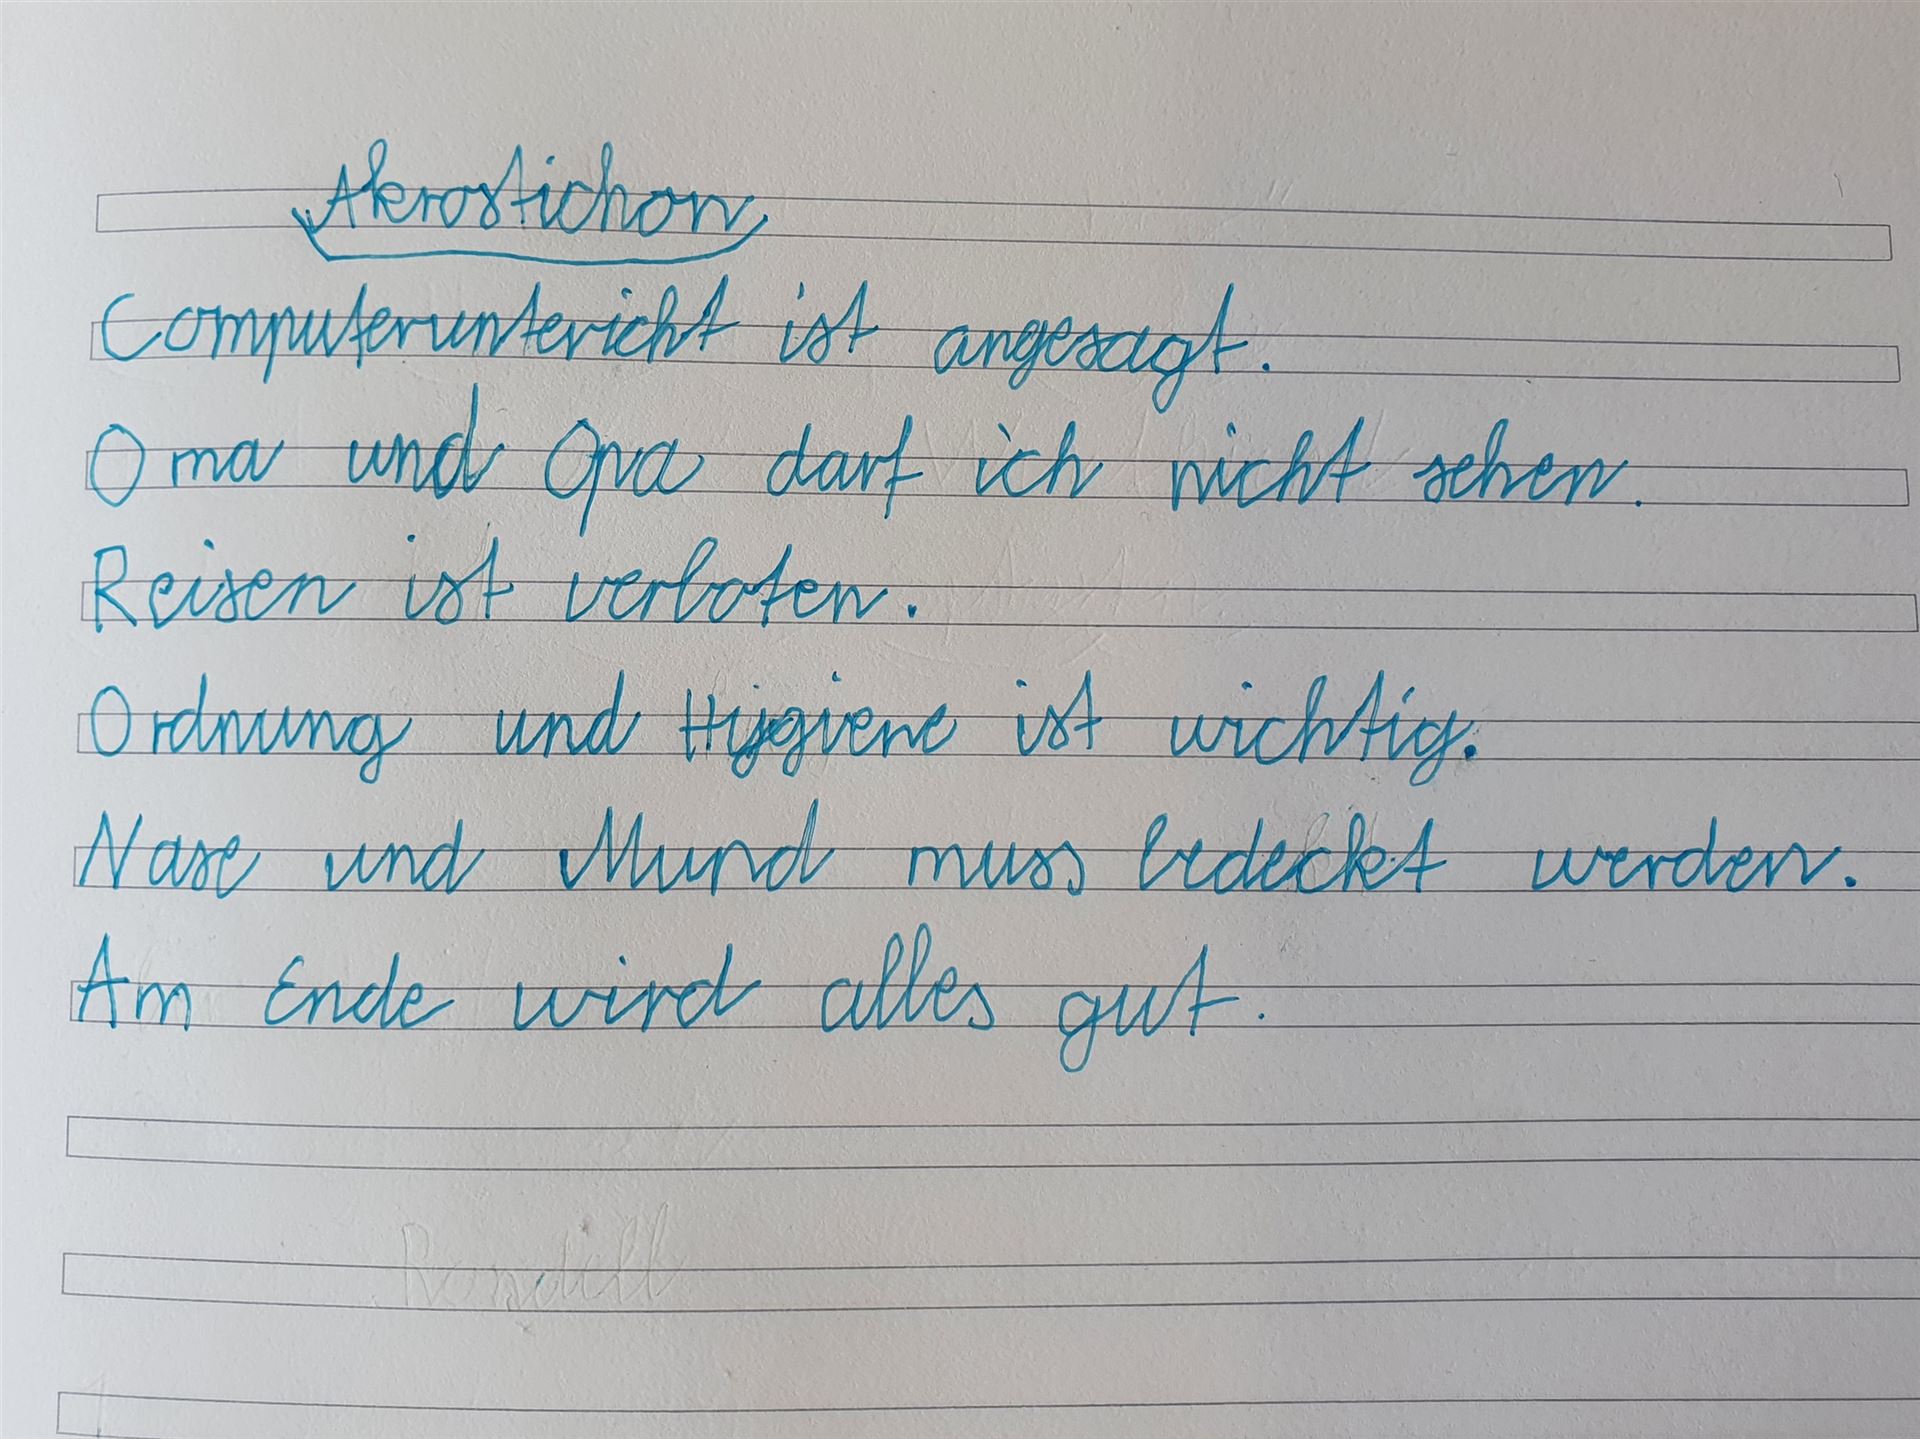 Akrostichon
Computeruntericht ist angesagt.
Oma und Opa darf ich nicht sehen.
Reisen ist verboten.
Ordnung und Hygiene ist wichtig.
Nase und Mund muss bedeckt werden.
Am Ende wird alles gut.